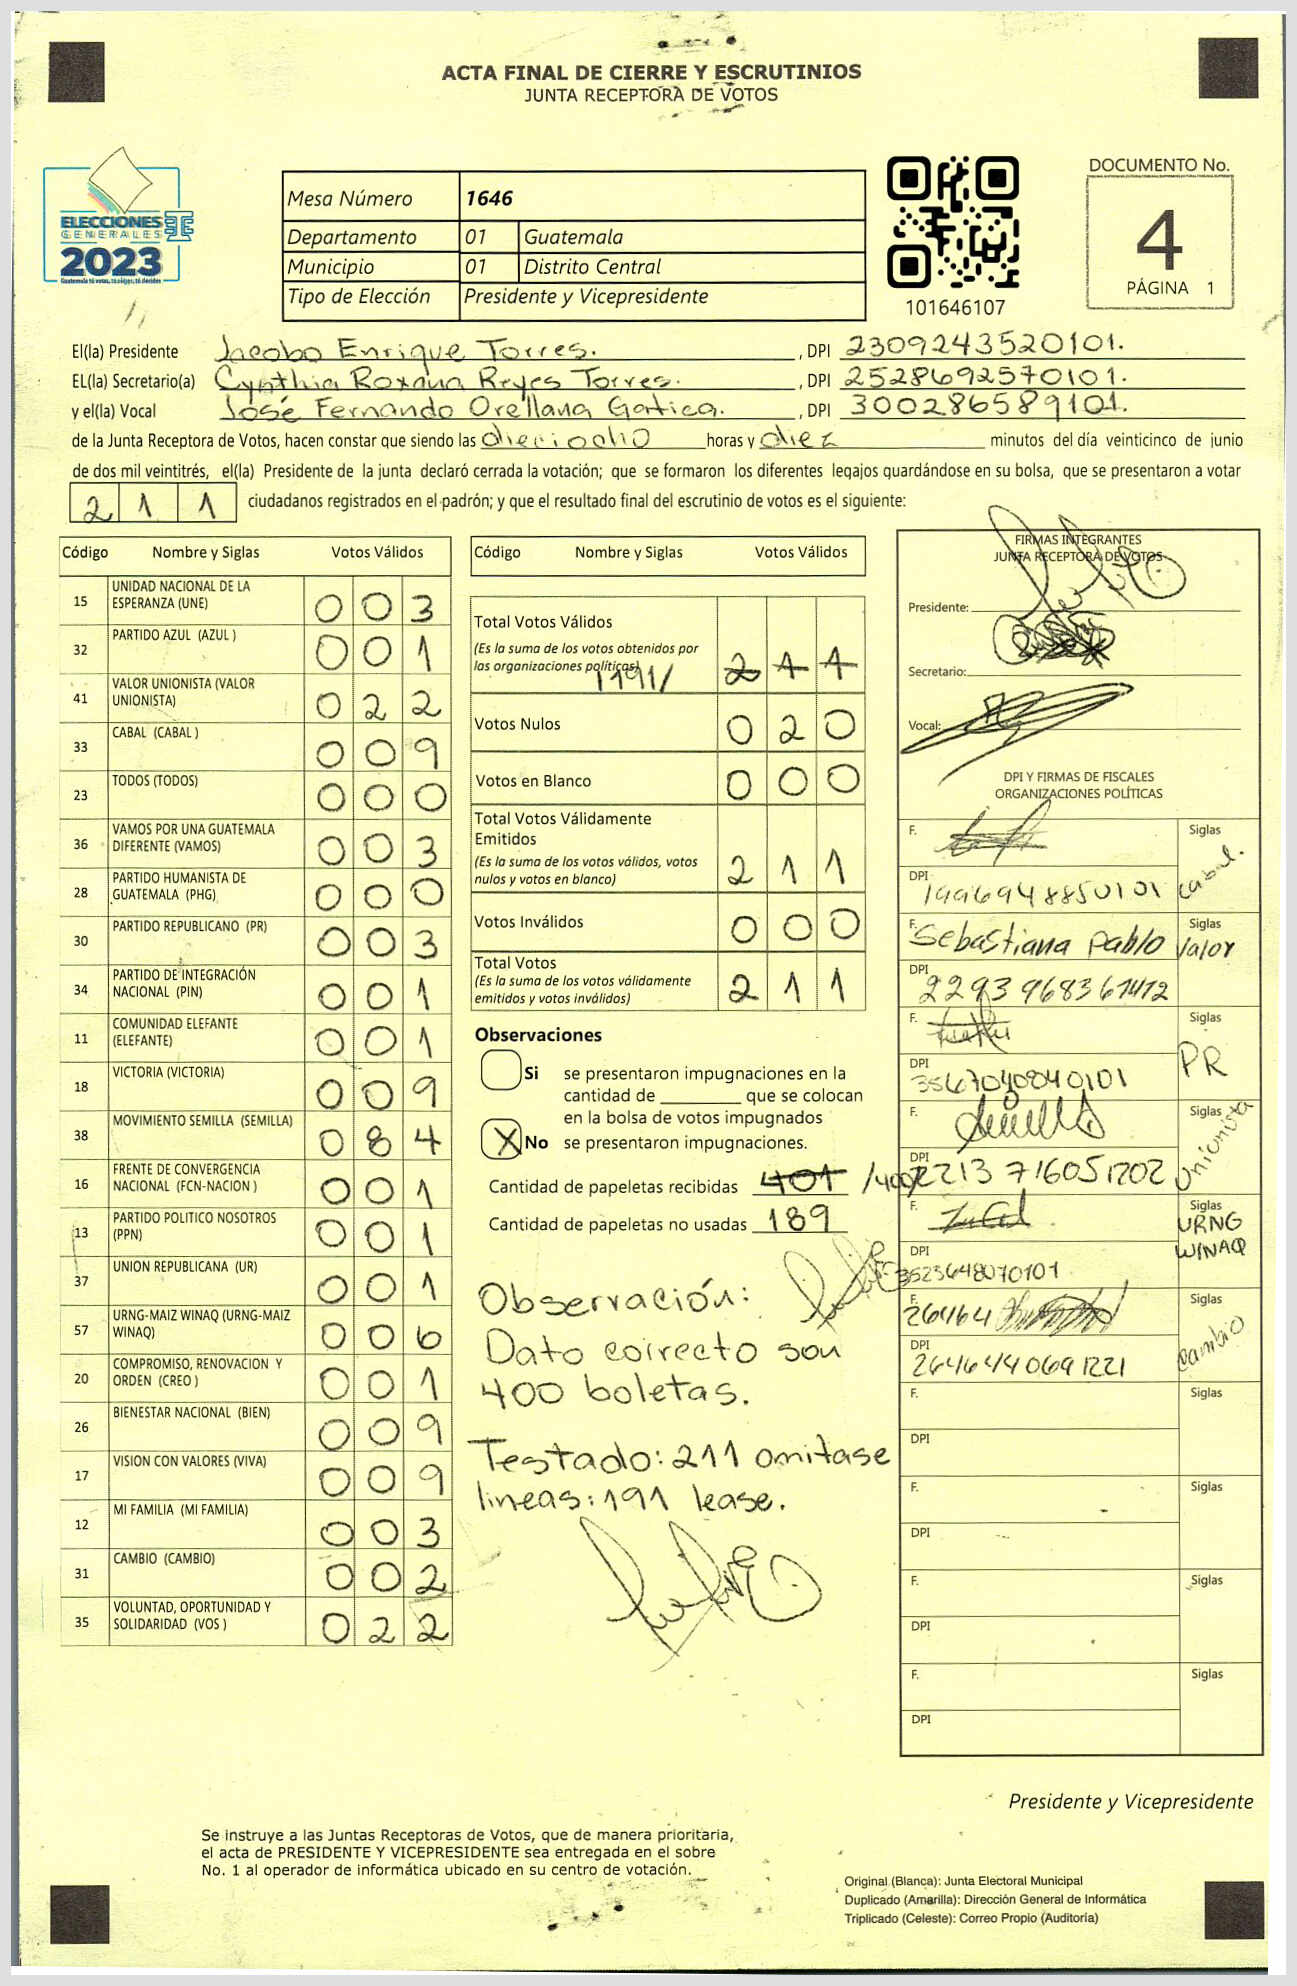 ACTA FINAL DE CIERRE Y ESCRUTINIOS
JUNTA RECEPTORA DE VOTOS
ELECCIONES
GENERALES
2023
Mesa Número 1646
Departamento 01 Guatemala
Municipio 01 Distrito Central
Tipo de Elección Presidente y Vicepresidente
101646107
DOCUMENTO No.
4
PÁGINA 1
El(la) Presidente Jacobo Enrique Torres. , DPI 2309243520101.
EL(la) Secretario(a) Cynthia Roxana Reyes Torres. , DPI 2528692570101.
y el(la) Vocal José Fernando Orellana Gatica. , DPI 300286589101.
de la Junta Receptora de Votos, hacen constar que siendo las dieciocho horas y diez minutos del día veinticinco de junio
de dos mil veintitrés, el(la) Presidente de la junta declaró cerrada la votación; que se formaron los diferentes legajos guardándose en su bolsa, que se presentaron a votar
2 1 1 ciudadanos registrados en el padrón; y que el resultado final del escrutinio de votos es el siguiente:
Código Nombre y Siglas Votos Válidos
15 UNIDAD NACIONAL DE LA ESPERANZA (UNE) 0 0 3
32 PARTIDO AZUL (AZUL ) 0 0 1
41 VALOR UNIONISTA (VALOR UNIONISTA) 0 2 2
33 CABAL (CABAL ) 0 0 9
23 TODOS (TODOS) 0 0 0
36 VAMOS POR UNA GUATEMALA DIFERENTE (VAMOS) 0 0 3
28 PARTIDO HUMANISTA DE GUATEMALA (PHG) 0 0 0
30 PARTIDO REPUBLICANO (PR) 0 0 3
34 PARTIDO DE INTEGRACIÓN NACIONAL (PIN) 0 0 1
11 COMUNIDAD ELEFANTE (ELEFANTE) 0 0 1
18 VICTORIA (VICTORIA) 0 0 9
38 MOVIMIENTO SEMILLA (SEMILLA) 0 8 4
16 FRENTE DE CONVERGENCIA NACIONAL (FCN-NACION ) 0 0 1
13 PARTIDO POLITICO NOSOTROS (PPN) 0 0 1
37 UNION REPUBLICANA (UR) 0 0 1
57 URNG-MAIZ WINAQ (URNG-MAIZ WINAQ) 0 0 6
20 COMPROMISO, RENOVACION Y ORDEN (CREO ) 0 0 1
26 BIENESTAR NACIONAL (BIEN) 0 0 9
17 VISION CON VALORES (VIVA) 0 0 9
12 MI FAMILIA (MI FAMILIA) 0 0 3
31 CAMBIO (CAMBIO) 0 0 2
35 VOLUNTAD, OPORTUNIDAD Y SOLIDARIDAD (VOS ) 0 2 2
Código Nombre y Siglas Votos Válidos
Total Votos Válidos
(Es la suma de los votos obtenidos por
las organizaciones políticas) 191/ 2 1 1
Votos Nulos 0 2 0
Votos en Blanco 0 0 0
Total Votos Válidamente
Emitidos
(Es la suma de los votos válidos, votos
nulos y votos en blanco) 2 1 1
Votos Inválidos 0 0 0
Total Votos
(Es la suma de los votos válidamente
emitidos y votos inválidos) 2 1 1
Observaciones
Si se presentaron impugnaciones en la
cantidad de ________ que se colocan
en la bolsa de votos impugnados
X No se presentaron impugnaciones.
Cantidad de papeletas recibidas 401 /400/
Cantidad de papeletas no usadas 189
Observación:
Dato correcto son
400 boletas.
Testado: 211 omitase
lineas: 191 lease.
FIRMAS INTEGRANTES
JUNTA RECEPTORA DE VOTOS
Presidente:
Secretario:
Vocal:
DPI Y FIRMAS DE FISCALES
ORGANIZACIONES POLÍTICAS
F. Siglas Cabal.
DPI 1996948850101
F. Sebastiana Pablo Siglas Valor
DPI 2293968361412
F. Siglas PR
DPI 3567040840101
F. Siglas Unionista
DPI 2213716051202
F. Siglas URNG WINAQ
DPI 3523648070101
F. 26464 Siglas Cambio
DPI 2646440691221
F. Siglas
DPI
F. Siglas
DPI
F. Siglas
DPI
F. Siglas
DPI
Presidente y Vicepresidente
Se instruye a las Juntas Receptoras de Votos, que de manera prioritaria,
el acta de PRESIDENTE Y VICEPRESIDENTE sea entregada en el sobre
No. 1 al operador de informática ubicado en su centro de votación.
Original (Blanca): Junta Electoral Municipal
Duplicado (Amarilla): Dirección General de Informática
Triplicado (Celeste): Correo Propio (Auditoría)